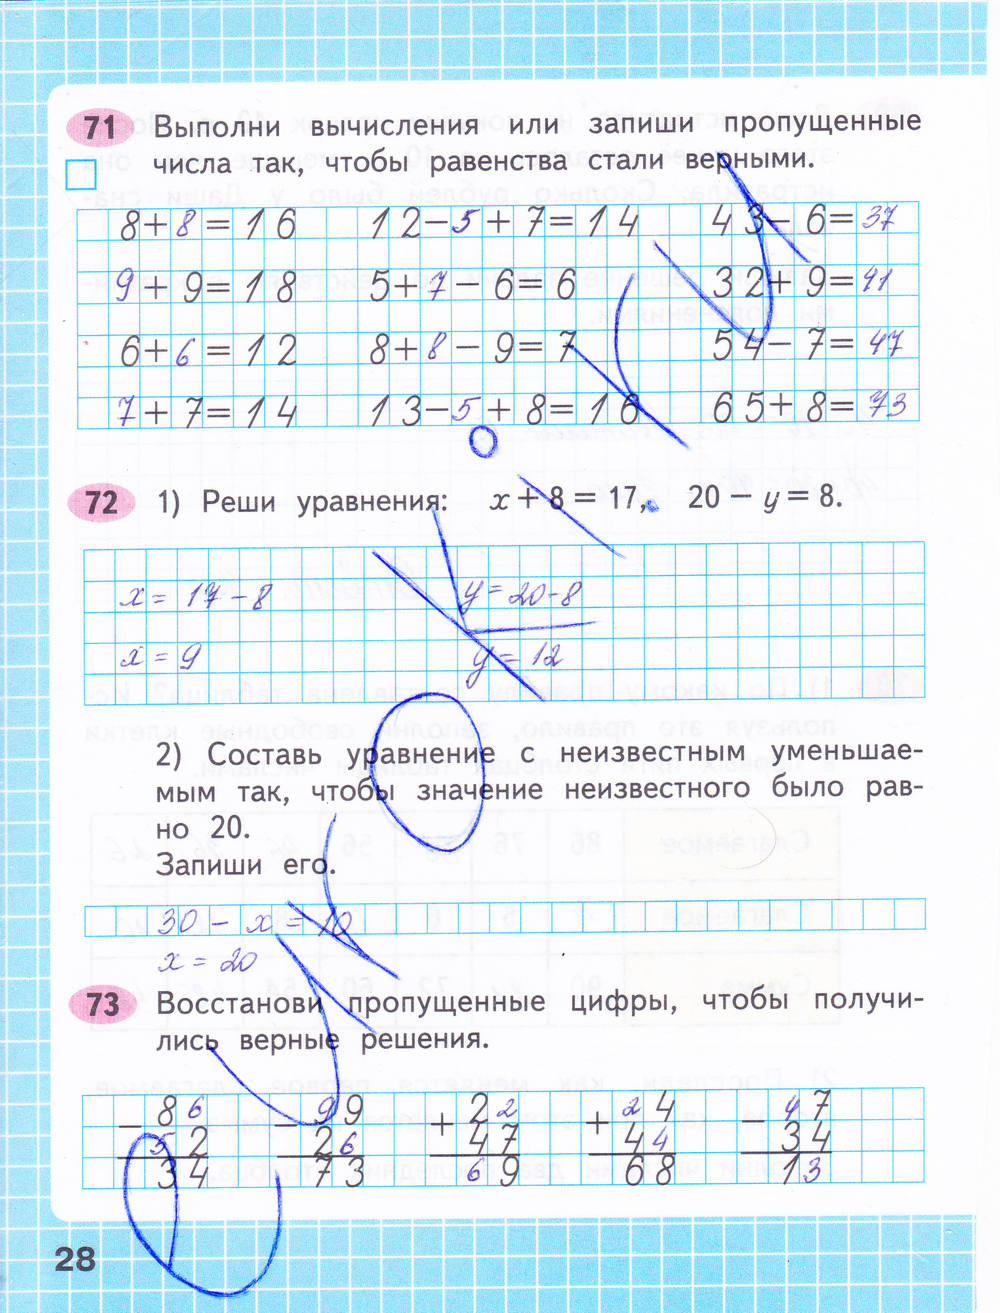 71 Выполни вычисления или запиши пропущенные
числа так, чтобы равенства стали верными.
8+8=16 12-5+7=14 43-6=37
9+9=18 5+7 6=6 32+9=41
6+6=12 8+8-9=7 54-7=47
7+7=14 13-5+8=16 65+8=73
72 1) Реши уравнения: x+8=17, 20-y=8.
x=17-8 y=20-8
x=9 y=12
2) Составь уравнение с неизвестным уменьшае-
мым так, чтобы значение неизвестного было рав-
но 20.
Запиши его.
30-x=10
x=20
73 Восстанови пропущенные цифры, чтобы получи-
лись верные решения.
86 99 22 24 47
- 52 26 + 47 + 44 - 34
34 73 69 68 13
28